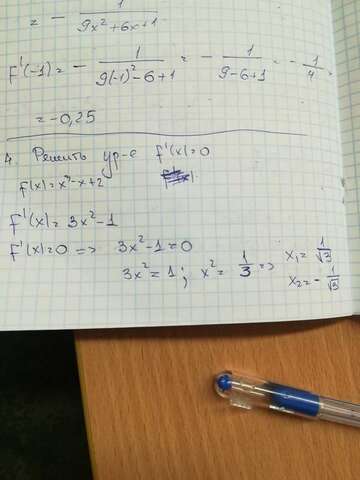 = - 1/(9x²+6x+1)
F'(-1) = - 1/(9(-1)²-6+1) = - 1/(9-6+1) = - 1/4 =
= -0,25
4. Решить ур-е f'(x)=0
f(x)=x³-x+2
F'(x)= 3x²-1
F'(x)=0 => 3x²-1=0
3x²=1; x²= 1/3 => x₁= 1/√3
x₂= - 1/√3